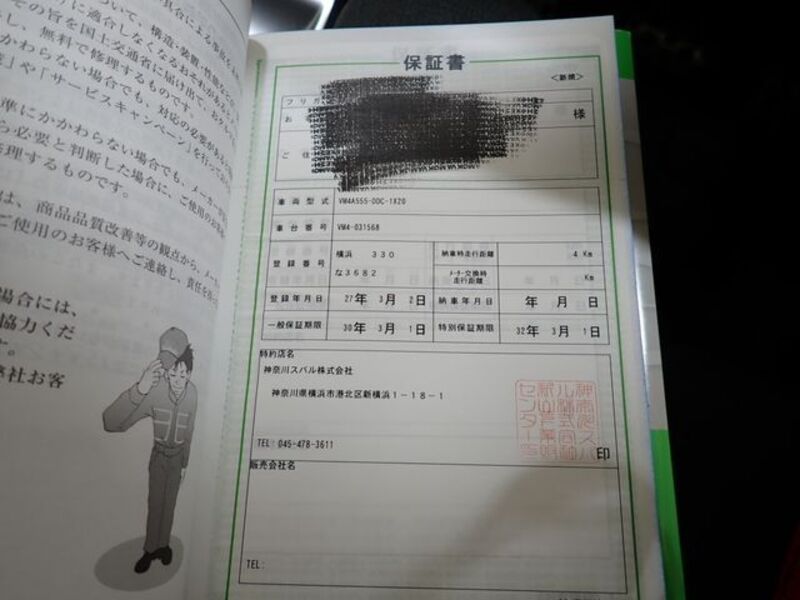 構造・装置・性能
その旨を国土交通省に届け出て、
し、無料で修理するものです。
かわらない場合でも、対応の必要が
」や「サービスキャンペーン」を行って
準にかかわらない場合でも、メーカーが
ら必要と判断した場合に、ご使用のお客様
修理するものです。
は、商品品質改善等の観点から、メーカー
ご使用のお客様へご連絡し、責任を
場合には、
協力くだ
す。
弊社お客
保証書
<新規>
フリガ
お
様
ご住
車両型式 VM4A555-ODC-1X20
車台番号 VM4-031568
登録番号 横浜 330 納車時走行距離 4 Km
な3682 メーター交換時走行距離 Km
登録年月日 27年 3月 2日 納車年月日 年 月 日
一般保証期限 30年 3月 1日 特別保証期限 32年 3月 1日
特約店名
神奈川スバル株式会社
神奈川県横浜市港北区新横浜1-18-1
TEL: 045-478-3611
印
販売会社名
TEL: